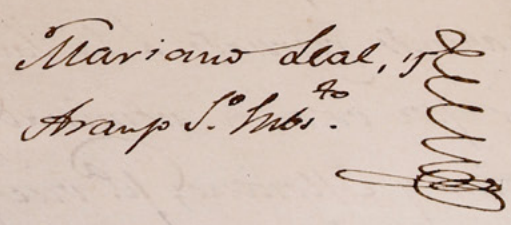 Mariano Leal, y
Araujo S.º Subs.to